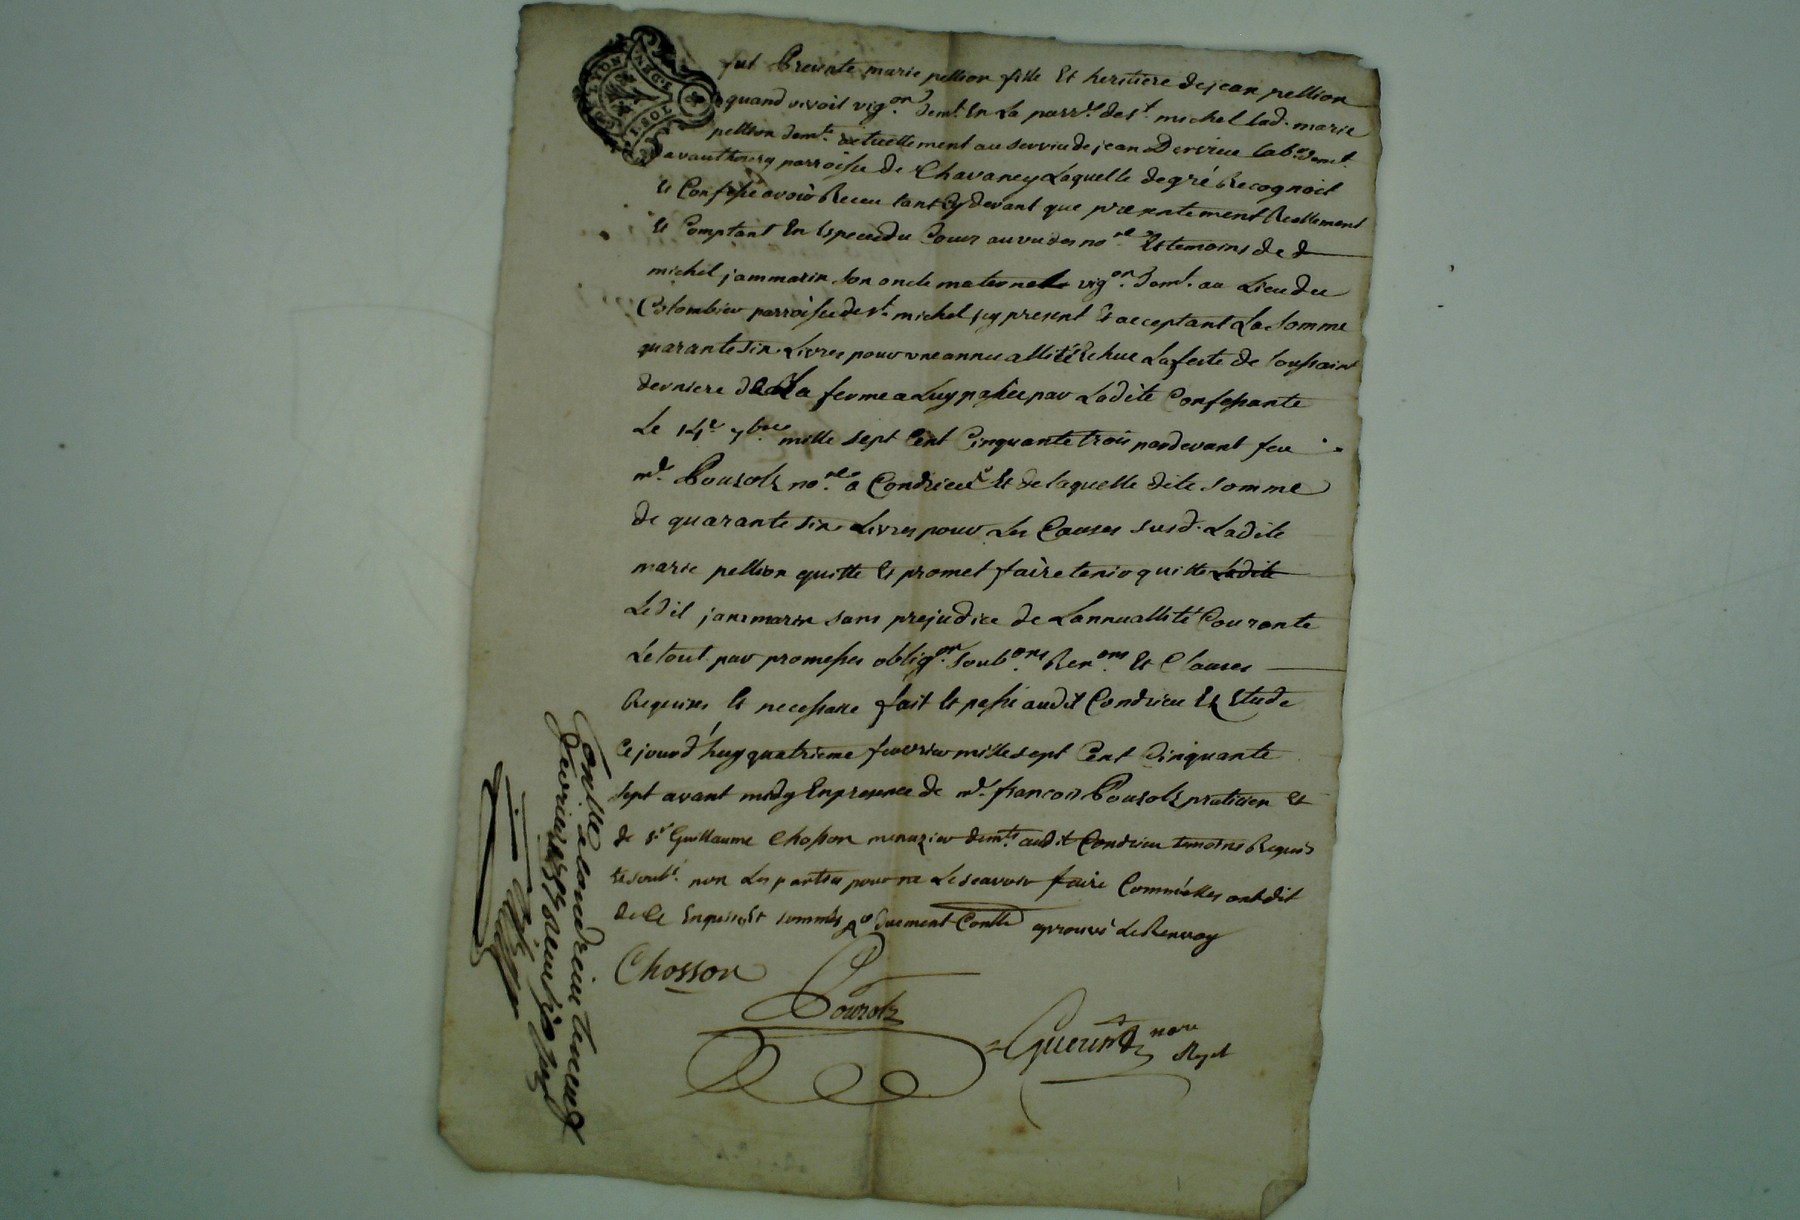 fut Presente marie pellion fille Et heritiere de jean pellion
quand vivoit vig.on demt. En La parr.e de st. michel lad. marie
pellion demte. actuellement au service de jean Dervieu lab.r demt.
a parroisse de Chavaney Laquelle de gré Recognoit
Et Confesse avoir Receu tant Cy devant que presentement Reellement
Et Comptant En Especes du Cours au vu des no.re Et temoins de
michel jammarin son oncle maternel vig.on demt. au Lieu du
Colombier parroisse de st. michel jcy present Et acceptant La somme
quarante six Livres pour une annuallité Echue La feste de toussaint
derniere de La ferme a Luy passée par Ladite Confessante
Le 14.e 7bre. mille sept Cent Cinquante trois pardevant feu
m.e Pouzols no.re a Condrieu Et de laquelle dite somme
de quarante six Livres pour Les Causes susd. Ladite
marie pellion quitte Et promet faire tenir quitte Ladite
Ledit jammarin sans prejudice de Lannuallité Courante
Le tout par promesses oblig.on soub.ons Ren.ons Et Clauses
Requises Et necessaire fait Et passé audit Condrieu Et Etude
Ce jourd'huy quatrieme fevrier mille sept Cent Cinquante
sept avant midy En presence de m.e francois Pouzols praticien Et
de s.r Guillaume Chosson menuzier demts. audit Condrieu temoins Requis
Et soub.t non Les parties pour ne Le scavoir faire Comm'elles ont dit
de Ce Enquises Et sommés Contlé aprouvé Le Renvoy
Chosson
Pouzols
Guerin nore
Royal
Contllé a Condrieu le neuf
fevrier 1757